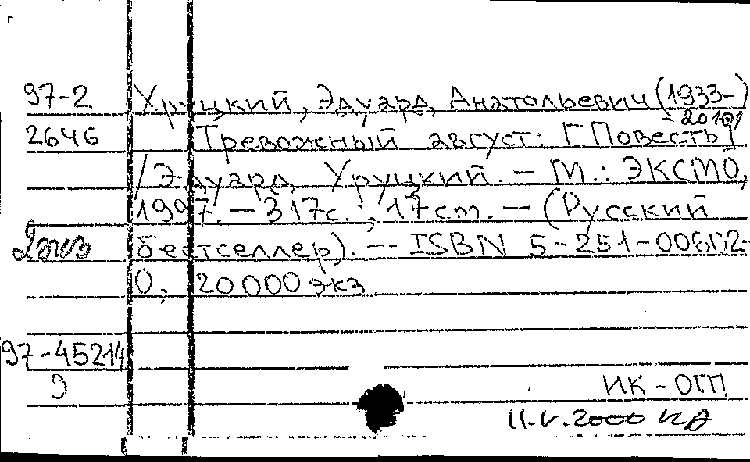 97-2 Хруцкий, Эдуард Анатольевич (1933-)
- 2010)
2646 Тревожный август: [Повесть]
/ Эдуард Хруцкий. — М.: ЭКСМО,
1997. — 317с.; 17см. — (Русский
бестселлер). — ISBN 5-251-00602-
0, 20000 экз
97-45214
9
ИК-ОГП
11.V.2000